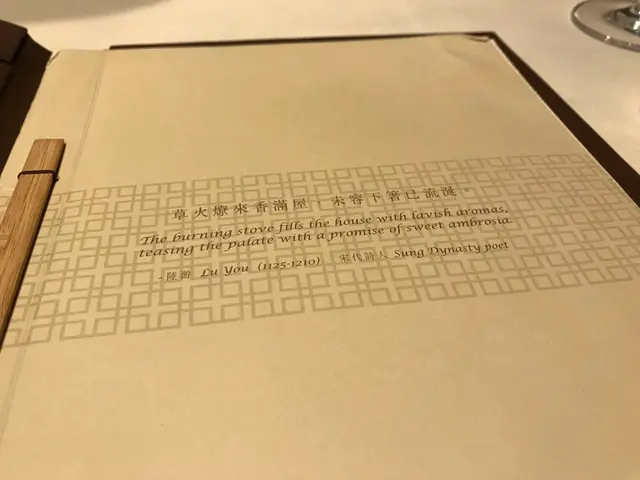 草火燎來香滿屋，未容下箸已流涎。
The burning stove fills the house with lavish aromas,
teasing the palate with a promise of sweet ambrosia.
-陸游 Lu You (1125-1210) 宋代詩人 Sung Dynasty poet